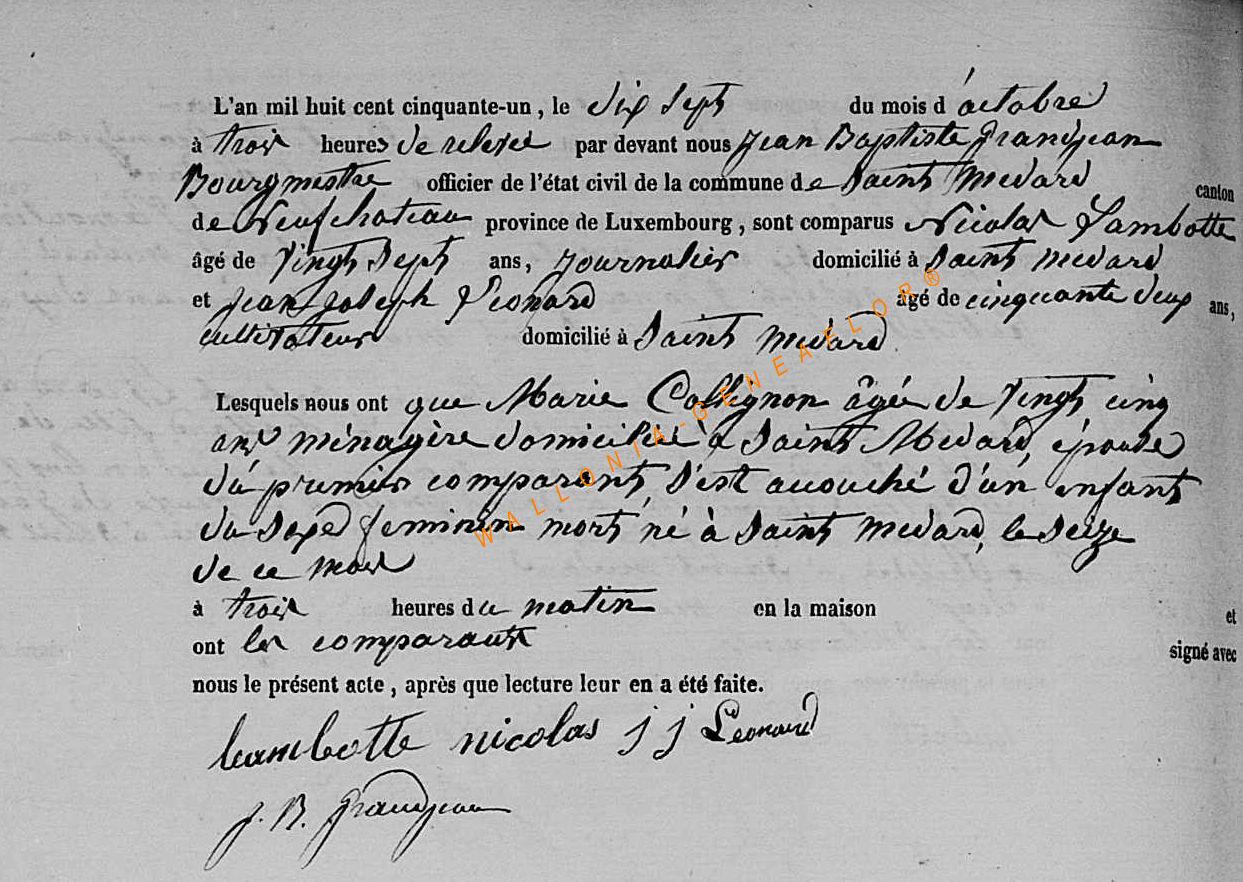 L'an mil huit cent cinquante-un, le dix sept du mois d'octobre
à trois heures de relevée par devant nous Jean Baptiste Grandjean
Bourgmestre officier de l'état civil de la commune de Saint Médard canton
de Neufchateau province de Luxembourg, sont comparus Nicolas Lambotte
âgé de vingt sept ans, journalier domicilié à Saint Medard
et Jean Joseph Leonard âgé de cinquante deux ans,
cultivateur domicilié à Saint Médard
Lesquels nous ont que Marie Collignon âgée de vingt cinq
ans ménagère domiciliée à Saint Medard, épouse
du premier comparant, s'est accouché d'un enfant
du sexe feminin mort né à Saint Medard, le seize
de ce mois
à trois heures du matin en la maison et
ont les comparants signé avec
nous le présent acte, après que lecture leur en a été faite.
Lambotte nicolas j j Leonard
J. B. Grandjean
WALLONIA-GENEAFLOR®